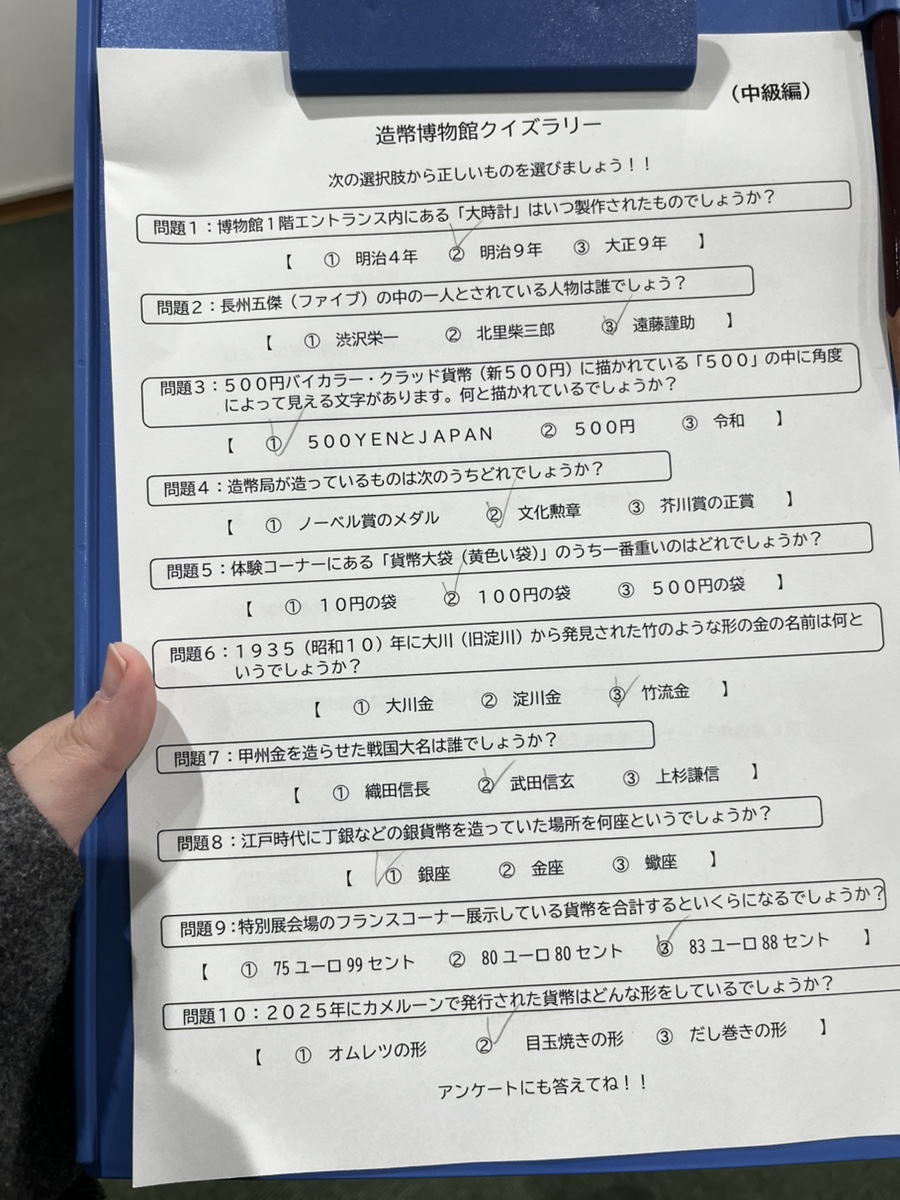 （中級編）
造幣博物館クイズラリー
次の選択肢から正しいものを選びましょう！！
問題１：博物館１階エントランス内にある「大時計」はいつ製作されたものでしょうか？
【　①　明治４年　②　明治９年　③　大正９年　】
問題２：長州五傑（ファイブ）の中の一人とされている人物は誰でしょう？
【　①　渋沢栄一　②　北里柴三郎　③　遠藤謹助　】
問題３：５００円バイカラー・クラッド貨幣（新５００円）に描かれている「５００」の中に角度
によって見える文字があります。何と描かれているでしょうか？
【　①　５００ＹＥＮとＪＡＰＡＮ　②　５００円　③　令和　】
問題４：造幣局が造っているものは次のうちどれでしょうか？
【　①　ノーベル賞のメダル　②　文化勲章　③　芥川賞の正賞　】
問題５：体験コーナーにある「貨幣大袋（黄色い袋）」のうち一番重いのはどれでしょうか？
【　①　１０円の袋　②　１００円の袋　③　５００円の袋　】
問題６：１９３５（昭和１０）年に大川（旧淀川）から発見された竹のような形の金の名前は何と
いうでしょうか？
【　①　大川金　②　淀川金　③　竹流金　】
問題７：甲州金を造らせた戦国大名は誰でしょうか？
【　①　織田信長　②　武田信玄　③　上杉謙信　】
問題８：江戸時代に丁銀などの銀貨幣を造っていた場所を何座というでしょうか？
【　①　銀座　②　金座　③　蠍座　】
問題９：特別展会場のフランスコーナー展示している貨幣を合計するといくらになるでしょうか？
【　①　75 ユーロ 99 セント　②　80 ユーロ 80 セント　③　83 ユーロ 88 セント　】
問題１０：２０２５年にカメルーンで発行された貨幣はどんな形をしているでしょうか？
【　①　オムレツの形　②　目玉焼きの形　③　だし巻きの形　】
アンケートにも答えてね！！